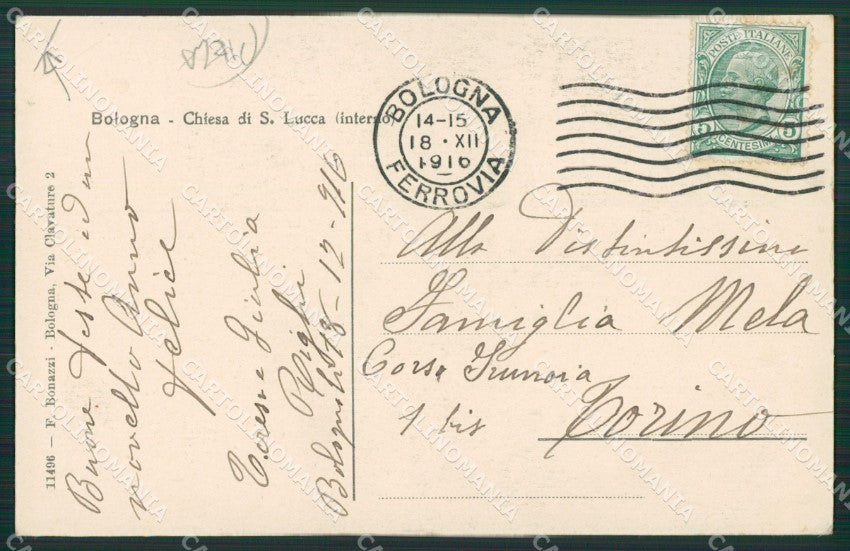 Bologna - Chiesa di S. Lucca (interno)
BOLOGNA
14-15
18 · XII
1916
FERROVIA
POSTE ITALIANE
5 5
CENTESIMI
11496 — F. Bonazzi - Bologna, Via Clavature 2
Buone feste ed un
novello Anno
felice
Teresa Giulia
Righi
Bologna li 18-12-916
Alla Distintissima
Famiglia Mela
Corso
1 bis
Torino
CARTOLINOMANIA